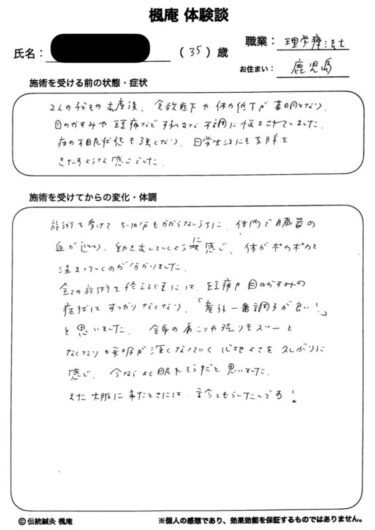 楓庵 体験談
氏名： （35）歳
職業： 理学療法士
お住まい： 鹿児島
施術を受ける前の状態・症状
2人の子どもの出産後、食欲低下や体力低下が着目となり、
目のかすみや頭痛など様々な不調に悩まされていました。
夜の不眠状態も強くなり、日常生活にも支障を
きたすような感じでした。
施術を受けてからの変化・体調
施術を受けて5〜10分もかからないうちに、体内で
血が巡り、動き出していくように感じ、体がポカポカと
温まっていくのが分かりました。
全ての施術を終えるときには、頭痛や目のかすみの
症状はすっかりなくなり、「産後一番調子が良い！」
と思いました。全身の肩こりや張りもスーッと
なくなり呼吸が深くなっていく心地よさを久しぶりに
感じ、今ならよく眠れそうだと思いました。
また大阪に来たときには、診てもらいたいです！
© 伝統鍼灸 楓庵
※個人の感想であり、効果効能を保証するものではありません。